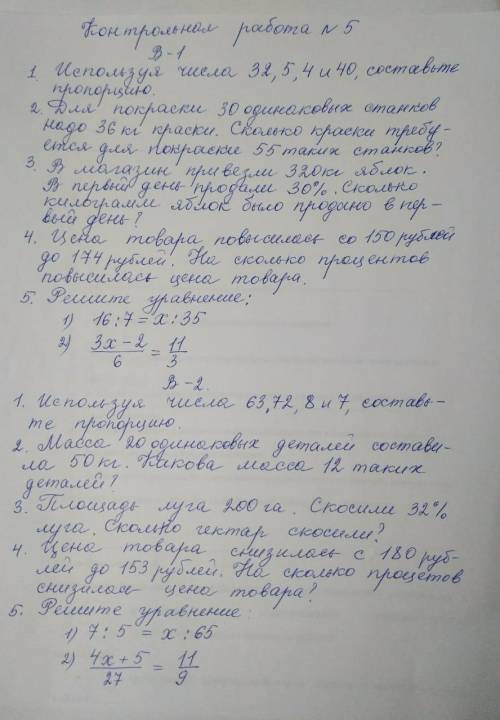 Контрольная работа N 5
В-1
1. Используя числа 32, 5, 4 и 40, составьте
пропорцию.
2. Для покраски 30 одинаковых станков
надо 36 кг краски. Сколько краски требу-
ется для покраски 55 таких станков?
3. В магазин привезли 320 кг яблок.
В первый день продали 30%. Сколько
килограмм яблок было продано в пер-
вый день?
4. Цена товара повысилась со 150 рублей
до 174 рублей. На сколько процентов
повысилась цена товара.
5. Решите уравнение:
1) 16:7 = x:35
2) (3x-2)/6 = 11/3
В-2.
1. Используя числа 63, 72, 8 и 7, составь-
те пропорцию.
2. Масса 20 одинаковых деталей состави-
ла 50 кг. Какова масса 12 таких
деталей?
3. Площадь луга 200 га. Скосили 32%
луга. Сколько гектар скосили?
4. Цена товара снизилась с 180 руб-
лей до 153 рублей. На сколько процетов
снизилась цена товара?
5. Решите уравнение:
1) 7:5 = x:65
2) (4x+5)/27 = 11/9